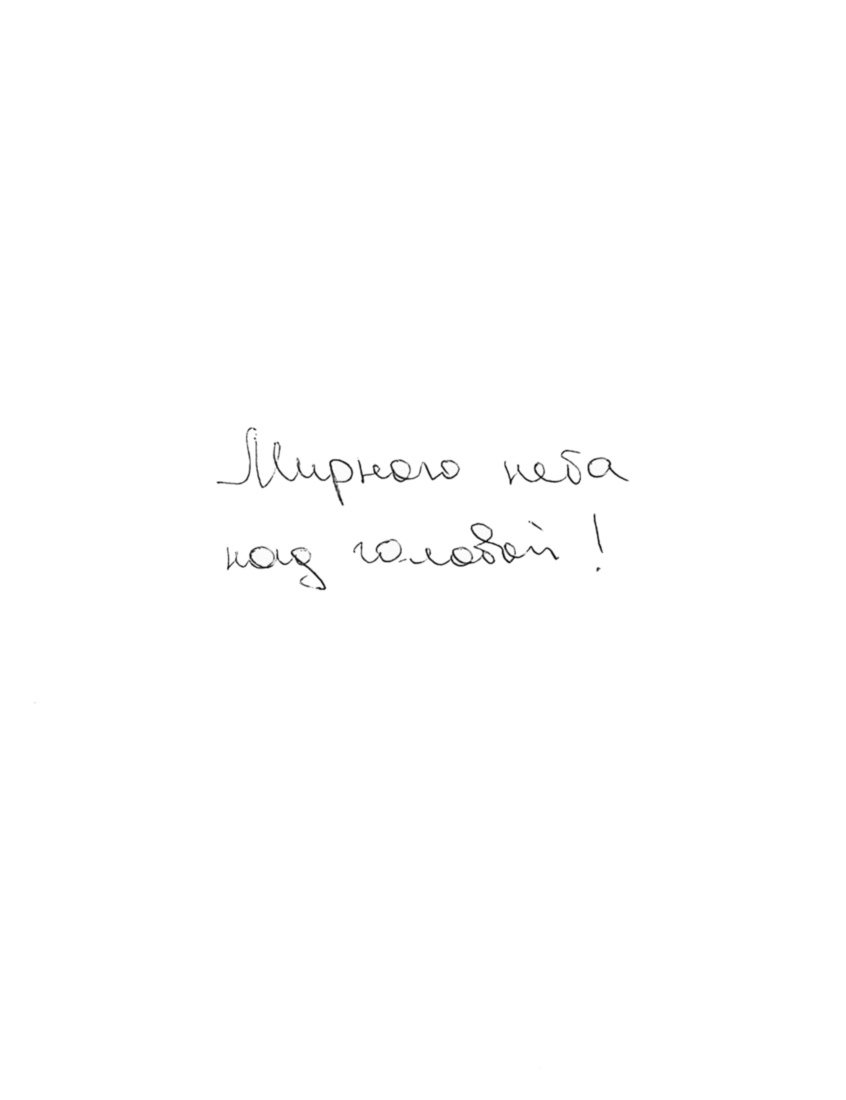 Мирного неба
над головой!